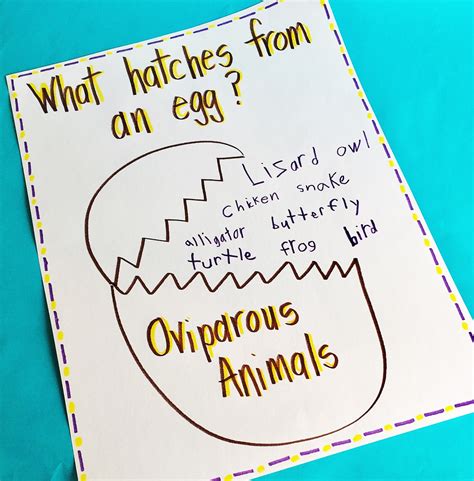 What hatches from
an egg?
Lisard owl
chicken snake
alligator butterfly
turtle frog bird
Oviparous
Animals